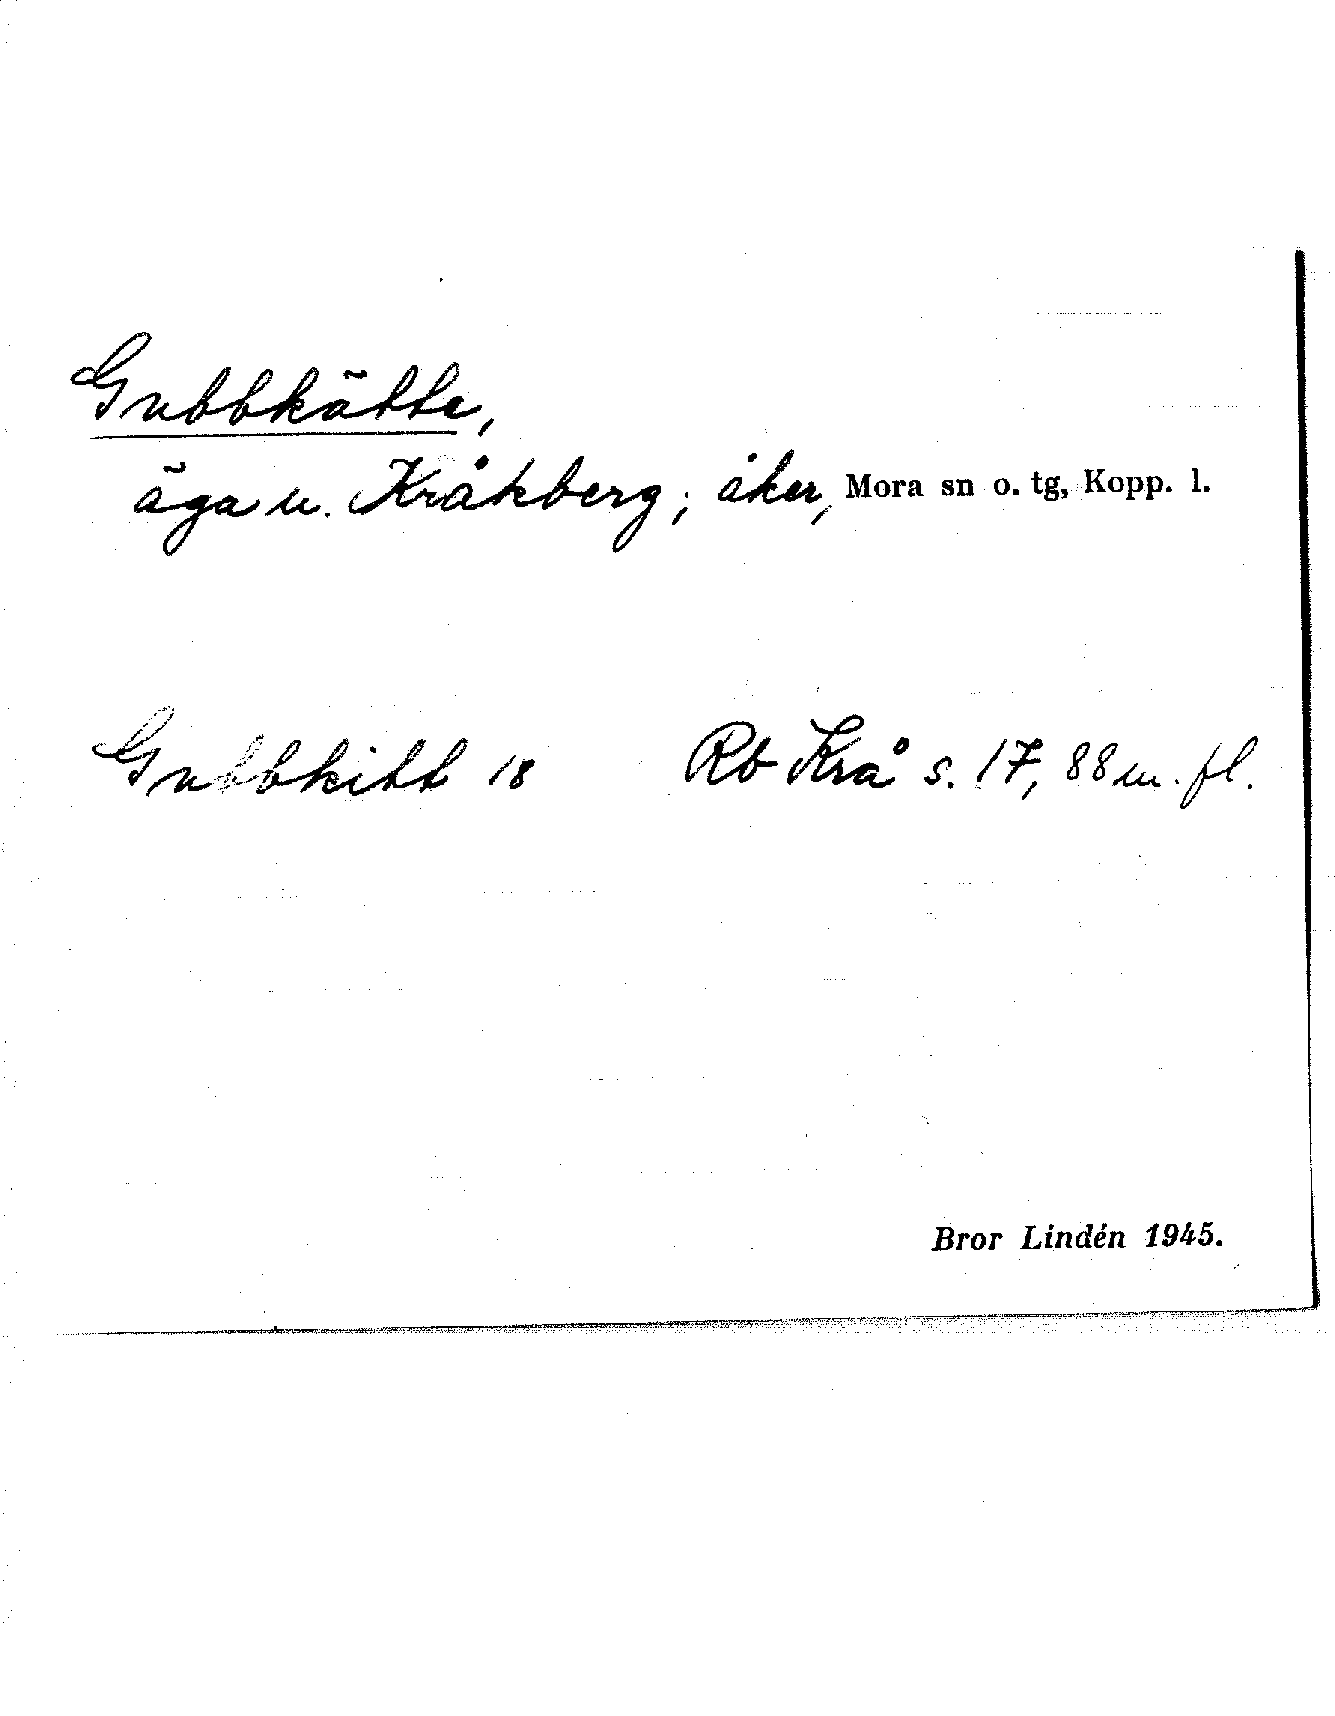 Gubbkätte,
äga u. Kråkberg; åker, Mora sn o. tg, Kopp. l.
Gubbkitt 18 Rb Krå s. 17, 88 m. fl.
Bror Lindén 1945.